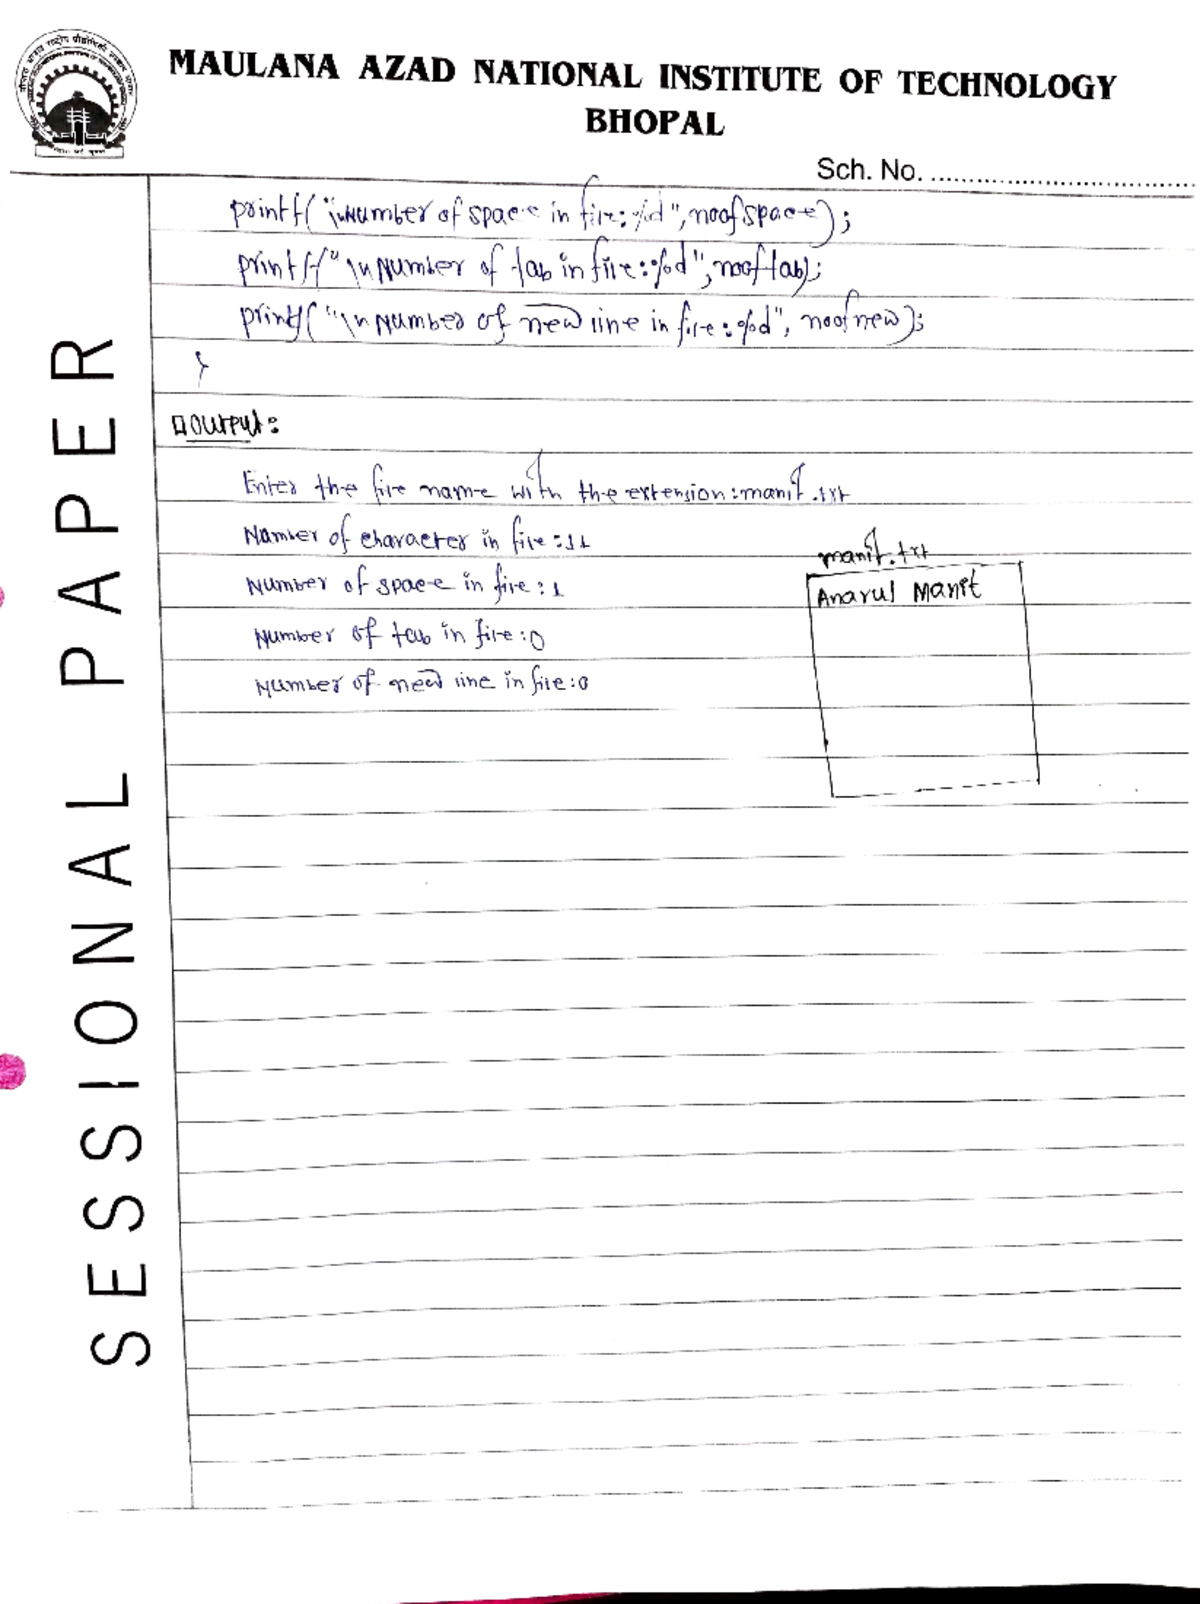 MAULANA AZAD NATIONAL INSTITUTE OF TECHNOLOGY
BHOPAL
Sch. No. ....................................
SESSIONAL PAPER
printf("\nNumber of space in file:%d",noofspace);
printf("\nNumber of tab in file:%d",nooftab);
printf("\nNumber of new line in file:%d", noofnew);
}
Output:
Enter the file name with the extension:manit.txt
Number of character in file:11
Number of space in file:1
Number of tab in file:0
Number of new line in file:0
manit.txt
Anarul Manit